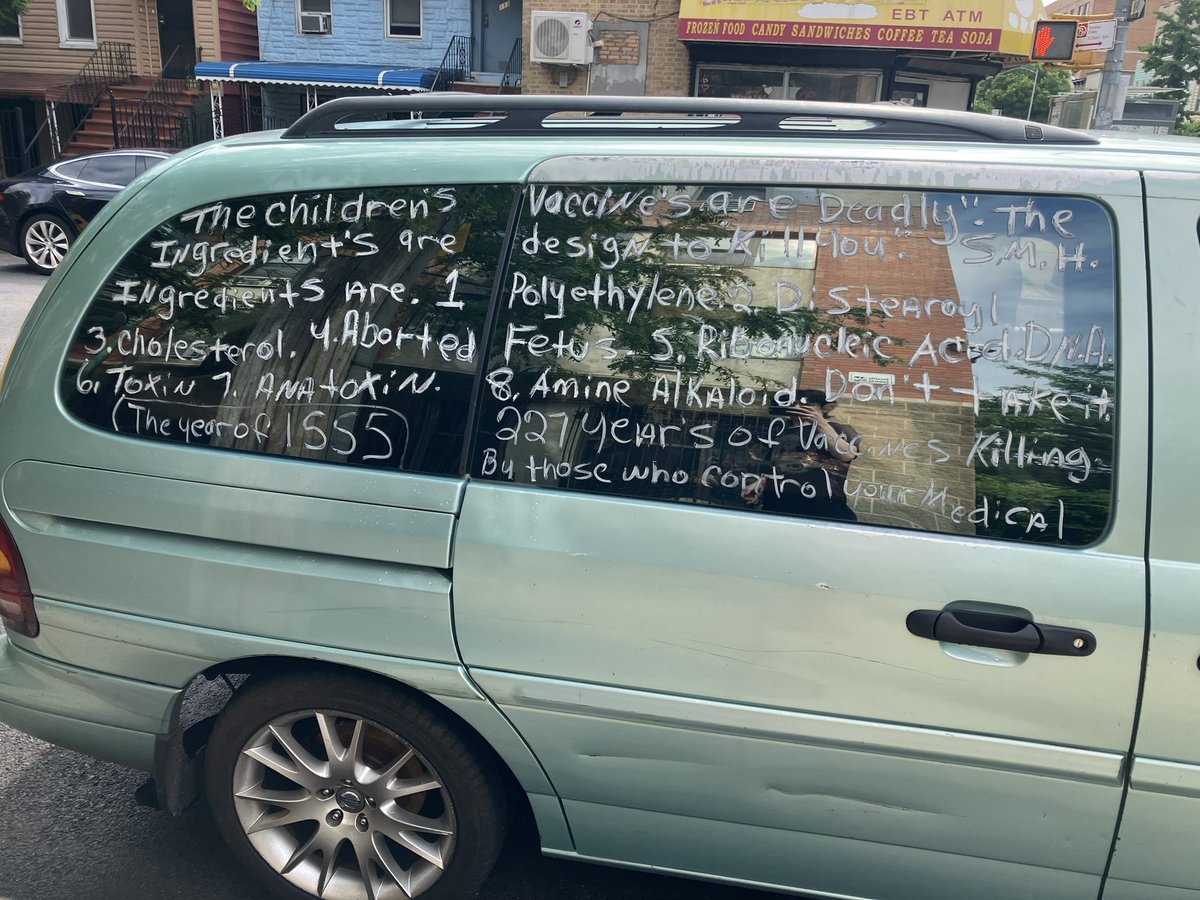 EBT ATM
FROZEN FOOD CANDY SANDWICHES COFFEE TEA SODA
The children's Vaccine's are Deadly". The
Ingredient's are design to "Kill You." S.M.H.
Ingredients Are. 1 Polyethylene 2. Distearoyl
3. Cholesterol. 4. Aborted Fetus. 5. Ribonucleic Acid. D.N.A.
6. Toxin 7. Anatoxin. 8. Amine Alkaloid. Don't Take it.
(The year of 1555) 227 Year's of Vaccines Killing.
By those who control your Medical